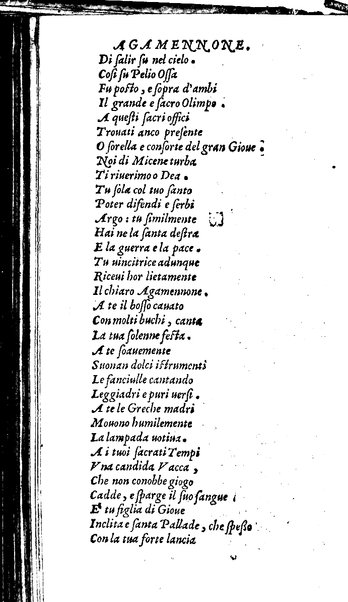 AGAMENNONE.
Di salir su nel cielo.
Cosi su Pelio Ossa
Fu posto, e sopra d'ambi
Il grande e sacro Olimpo.
A questi sacri offici
Trouati anco presente
O sorella e consorte del gran Gioue.
Noi di Micene turba
Ti riuerimo o Dea.
Tu sola col tuo santo
Poter difendi e serbi
Argo: tu similmente
Hai ne la santa destra
E la guerra e la pace.
Tu uincitrice adunque
Riceui hor lietamente
Il chiaro Agamennone.
A te il bosso cauato
Con molti buchi, canta
La tua solenne festa.
A te soauemente
Suonan dolci istrumenti
Le fanciulle cantando
Leggiadri e puri uersi.
A te le Greche madri
Mouono humilemente
La lampada uotiua.
A i tuoi sacrati Tempi
Vna candida Vacca,
Che non conobbe giogo
Cadde, e sparge il suo sangue
E tu figlia di Gioue
Inclita e santa Pallade, che spesso
Con la tua forte lancia